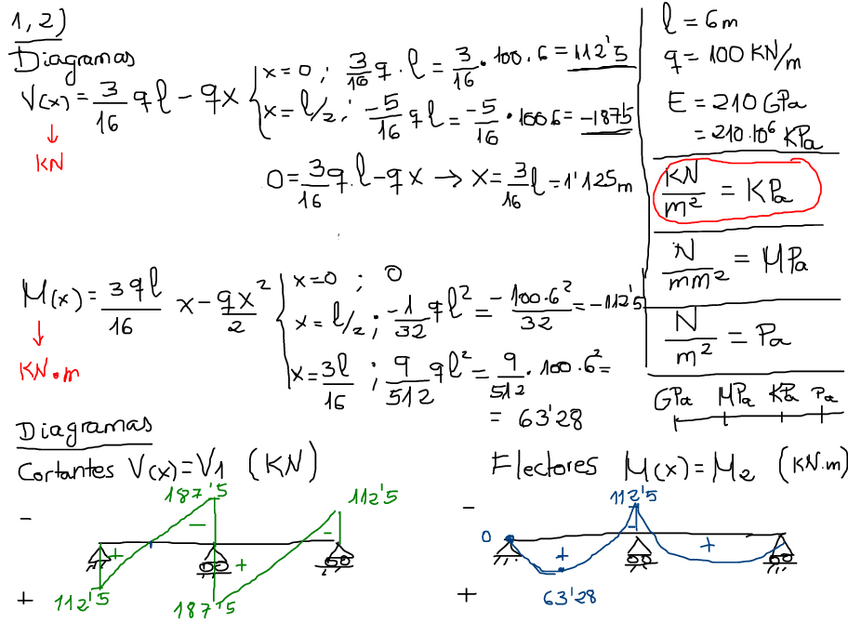 1,2)
Diagramas
V(x) = 3/16 ql - qx { x=0 ; 3/16 q·l = 3/16 · 100·6 = 112'5
x = l/2 ; -5/16 ql = -5/16 · 100·6 = -187'5
↓
KN
0 = 3/16 q·l - qx → x = 3/16 l = 1'125 m
M(x) = 3ql/16 x - qx²/2 { x=0 ; 0
x = l/2 ; -1/32 ql² = -100·6²/32 = -112'5
x = 3l/16 ; 9/512 ql² = 9/512 · 100·6² =
= 63'28
↓
KN·m
l = 6m
q = 100 KN/m
E = 210 GPa
= 210·10⁶ KPa
KN/m² = KPa
N/mm² = MPa
N/m² = Pa
GPa MPa KPa Pa
Diagramas
Cortantes V(x) = V1 (KN)
187'5
112'5
-
-
-
+
+
+
112'5
187'5
Flectores M(x) = M2 (KN·m)
-
112'5
0
-
+
+
+
63'28